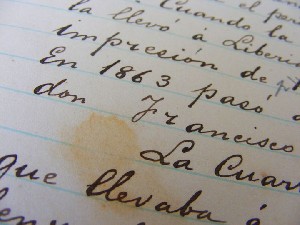 el
Cuando la
la llevó á Liberia
impresión de
En 1863 pasó á
don Francisco
La Cuar
que llevaba á